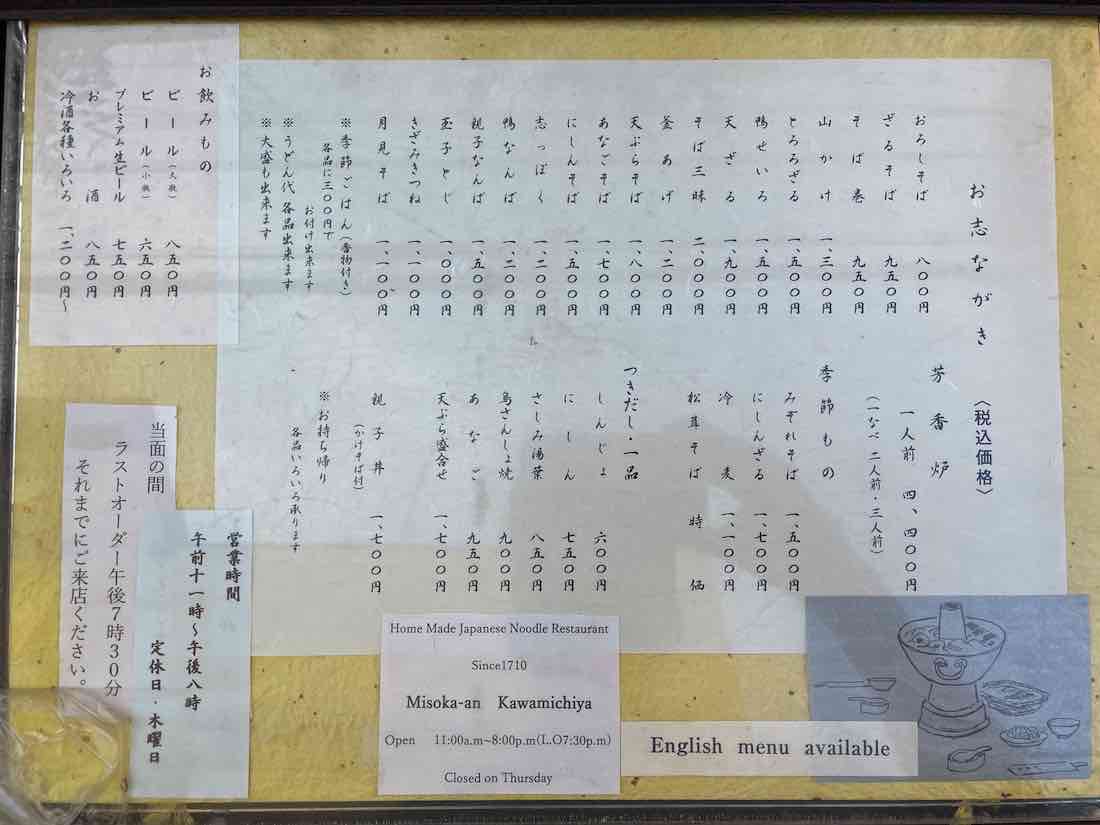 お志ながき
〈税込価格〉
おろしそば 八〇〇円
ざるそば 九五〇円
そば巻 九五〇円
山かけ 一、三〇〇円
とろろざる 一、五〇〇円
鴨せいろ 一、五〇〇円
天ざる 一、九〇〇円
そば三昧 二、〇〇〇円
釜あげ 一、二〇〇円
天ぷらそば 一、八〇〇円
あなごそば 一、七〇〇円
にしんそば 一、五〇〇円
志っぽく 一、二〇〇円
鴨なんば 一、二〇〇円
親子なんば 一、五〇〇円
玉子とじ 一、〇〇〇円
きざみきつね 一、一〇〇円
月見そば 一、一〇〇円
※季節ごはん(香物付き)
各品に三〇〇円で
お付け出来ます
※うどん代 各品出来ます
※大盛も出来ます
芳香炉
一人前 四、四〇〇円
(一なべ 二人前・三人前)
季節もの
みぞれそば 一、五〇〇円
にしんざる 一、七〇〇円
冷麦 一、一〇〇円
松茸そば 時価
つきだし・一品
しんじょ 六〇〇円
にしん 七五〇円
さしみ湯葉 八五〇円
鳥さんしょ焼 九〇〇円
あなご 九五〇円
天ぷら盛合せ 一、七〇〇円
親子丼 一、七〇〇円
(かけそば付)
※お持ち帰り
各品いろいろ承ります
お飲みもの
ビール(大瓶) 八五〇円
ビール(小瓶) 六五〇円
プレミアム生ビール 七五〇円
お酒 八五〇円
冷酒各種いろいろ 一、二〇〇円〜
営業時間
午前十一時〜午後八時
定休日・木曜日
当面の間
ラストオーダー午後7時30分
それまでにご来店ください。
Home Made Japanese Noodle Restaurant
Since1710
Misoka-an Kawamichiya
Open 11:00a.m~8:00p.m(L.O7:30p.m)
Closed on Thursday
English menu available